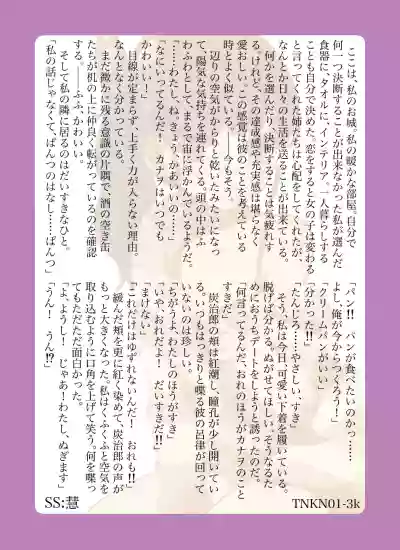 ここは、私のお城。私の暖かな部屋。自分で
何一つ決断することが出来なかった私が選んだ
食器に、タオルに、インテリア。一人暮らしする
ことも自分で決めた。恋をすると女の子は変わる
と言ってくれた姉たちは心配をしてくれたが、
なんとか日々の生活を送ることが出来ている。
何かを選んだり、決断することは気疲れす
る。けれど、その達成感や充実感は堪らなく
愛おしい。この感覚は彼のことを考えている
時とよく似ている。――今もそう。
辺りの空気がからりと乾いたみたいになっ
て、陽気な気持ちを連れてくる。頭の中はふ
わふわとして、まるで宙に浮かんでいるようだ。
「……わたし、ね。きょう、かあいいの……」
「なにいってるんだ！　カナヲはいつでも
かわいい！」
目線が定まらず、上手く力が入らない理由。
なんとなく分かっている。
まだ微かに残る意識の片隅で、酒の空き缶
たちが机の上に仲良く転がっているのを確認
する。――ふふ、かわいい。
そして私の隣に居るのはだいすきなひと。
「私の話じゃなくて、ぱんつのはなし……ぱんつ」
「パン!!　パンが食べたいのかっ……
よし、俺が今からつくろう！」
「クリームパンがいい」
「分かった!!」
「たんじろ……やさしい、すき」
そう、私は今日、可愛い下着を履いている。
脱げば分かる。ぬがせてほしい。そうなるた
めにおうちデートをしようと誘ったのだ。
「何言ってるんだ、おれのほうがカナヲのこと
すきだ」
炭治郎の頬は紅潮し、瞳孔が少し開いてい
る。いつもはっきりと喋る彼の呂律が回って
いないのは珍しい。
「ちがうよ、わたしのほうがすき」
「いや、おれだよ！　だいすきだ!!」
「まけない」
「これだけはゆずれないんだ！　おれも!!」
緩んだ頬を更に紅く染めて、炭治郎の声が
もっと大きくなった。私はくふくふと空気を
取り込むように口角を上げて笑う。何を喋っ
てもただただ面白かった。
「よ、ようし！　じゃあ！わたし、ぬぎます」
「うん！　うん!?」
SS:慧
TNKN01-3k